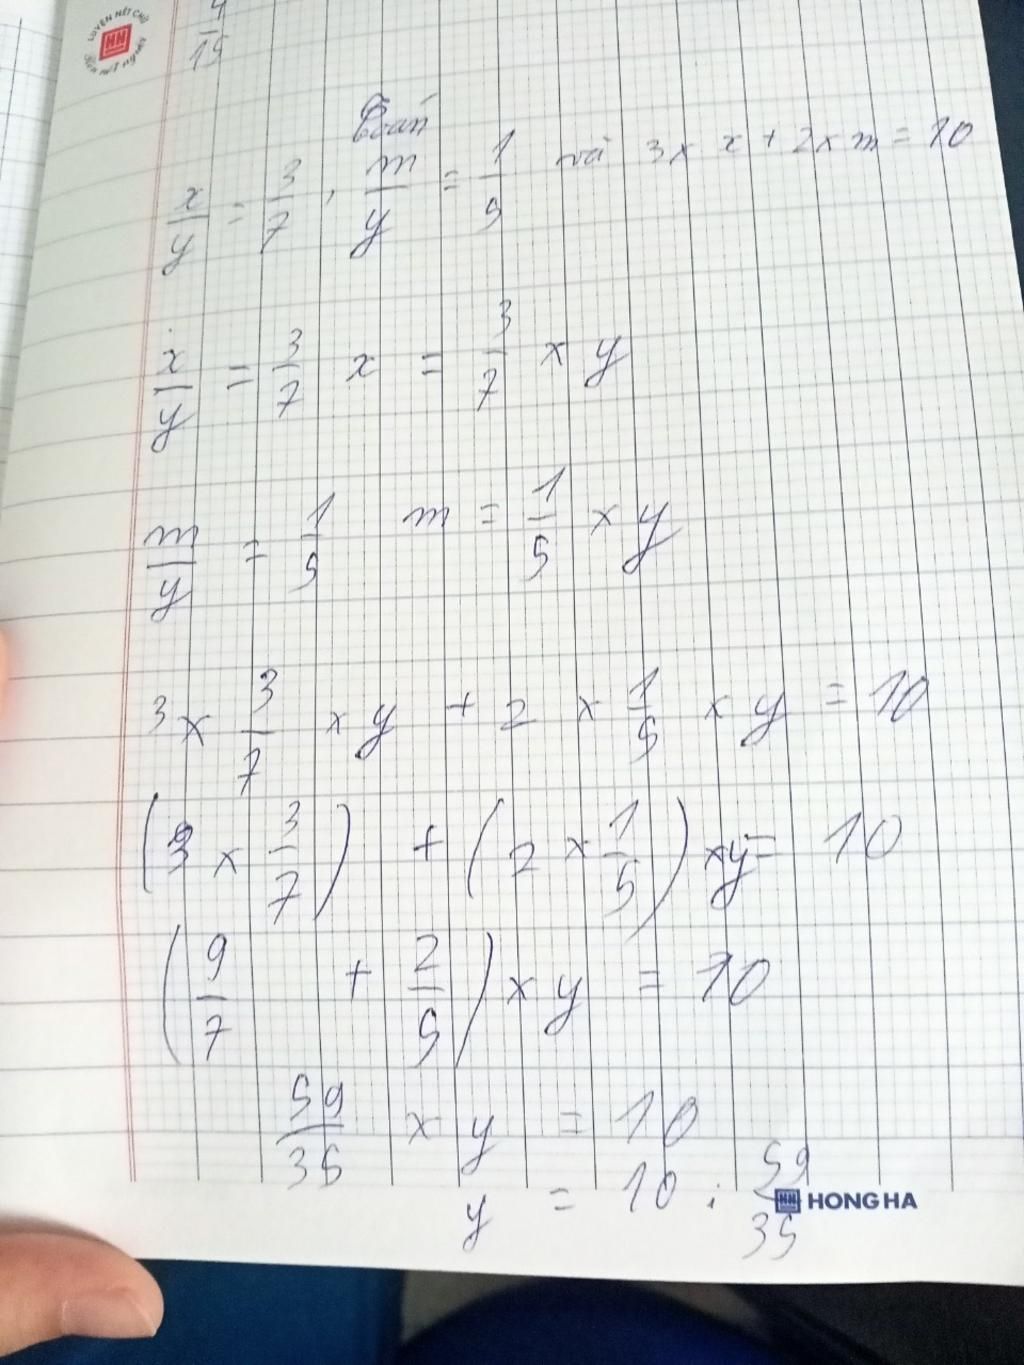 LUYỆN NÉT CHỮ
4/15
Toán
x/y = 3/7 , m/y = 1/5 và 3 x x + 2 x m = 10
x/y = 3/7 x = 3/7 x y
m/y = 1/5 m = 1/5 x y
3 x 3/7 x y + 2 x 1/5 x y = 10
(3 x 3/7) + (2 x 1/5) x y = 10
(9/7 + 2/5) x y = 10
59/35 x y = 10
y = 10 : 59/35
HONG HA